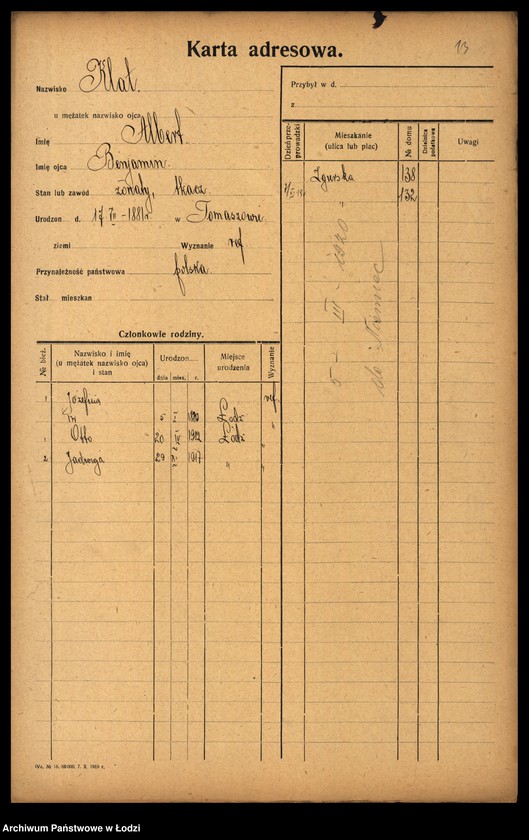 Karta adresowa.
13
Nazwisko Klat.
u mężatek nazwisko ojca
Imię Albert
Imię ojca Benjamin.
Stan lub zawód żonaty, tkacz
Urodzon d. 17 VII – 1881 r. w Tomaszowie
ziemi Wyznanie ref
Przynależność państwowa polska.
Stał mieszkan
Przybył w d.
z
Dzień przeprowadzki
Mieszkanie (ulica lub plac)
№ domu
Dzielnica podatkowa
Uwagi
Zgierska 138
132
5 – III – 1920
do Niemiec
Członkowie rodziny.
№ bież.
Nazwisko i imię (u mężatek nazwisko ojca) i stan
Urodzon
dnia mies. r.
Miejsce urodzenia
Wyznanie
1 Józefina ref.
5 Łódź
1 Otto 20 1912 Łódź "
2 Jadwiga 29 1917 " "
IVa. № 16. 60000. 7. X. 1919 r.
Archiwum Państwowe w Łodzi